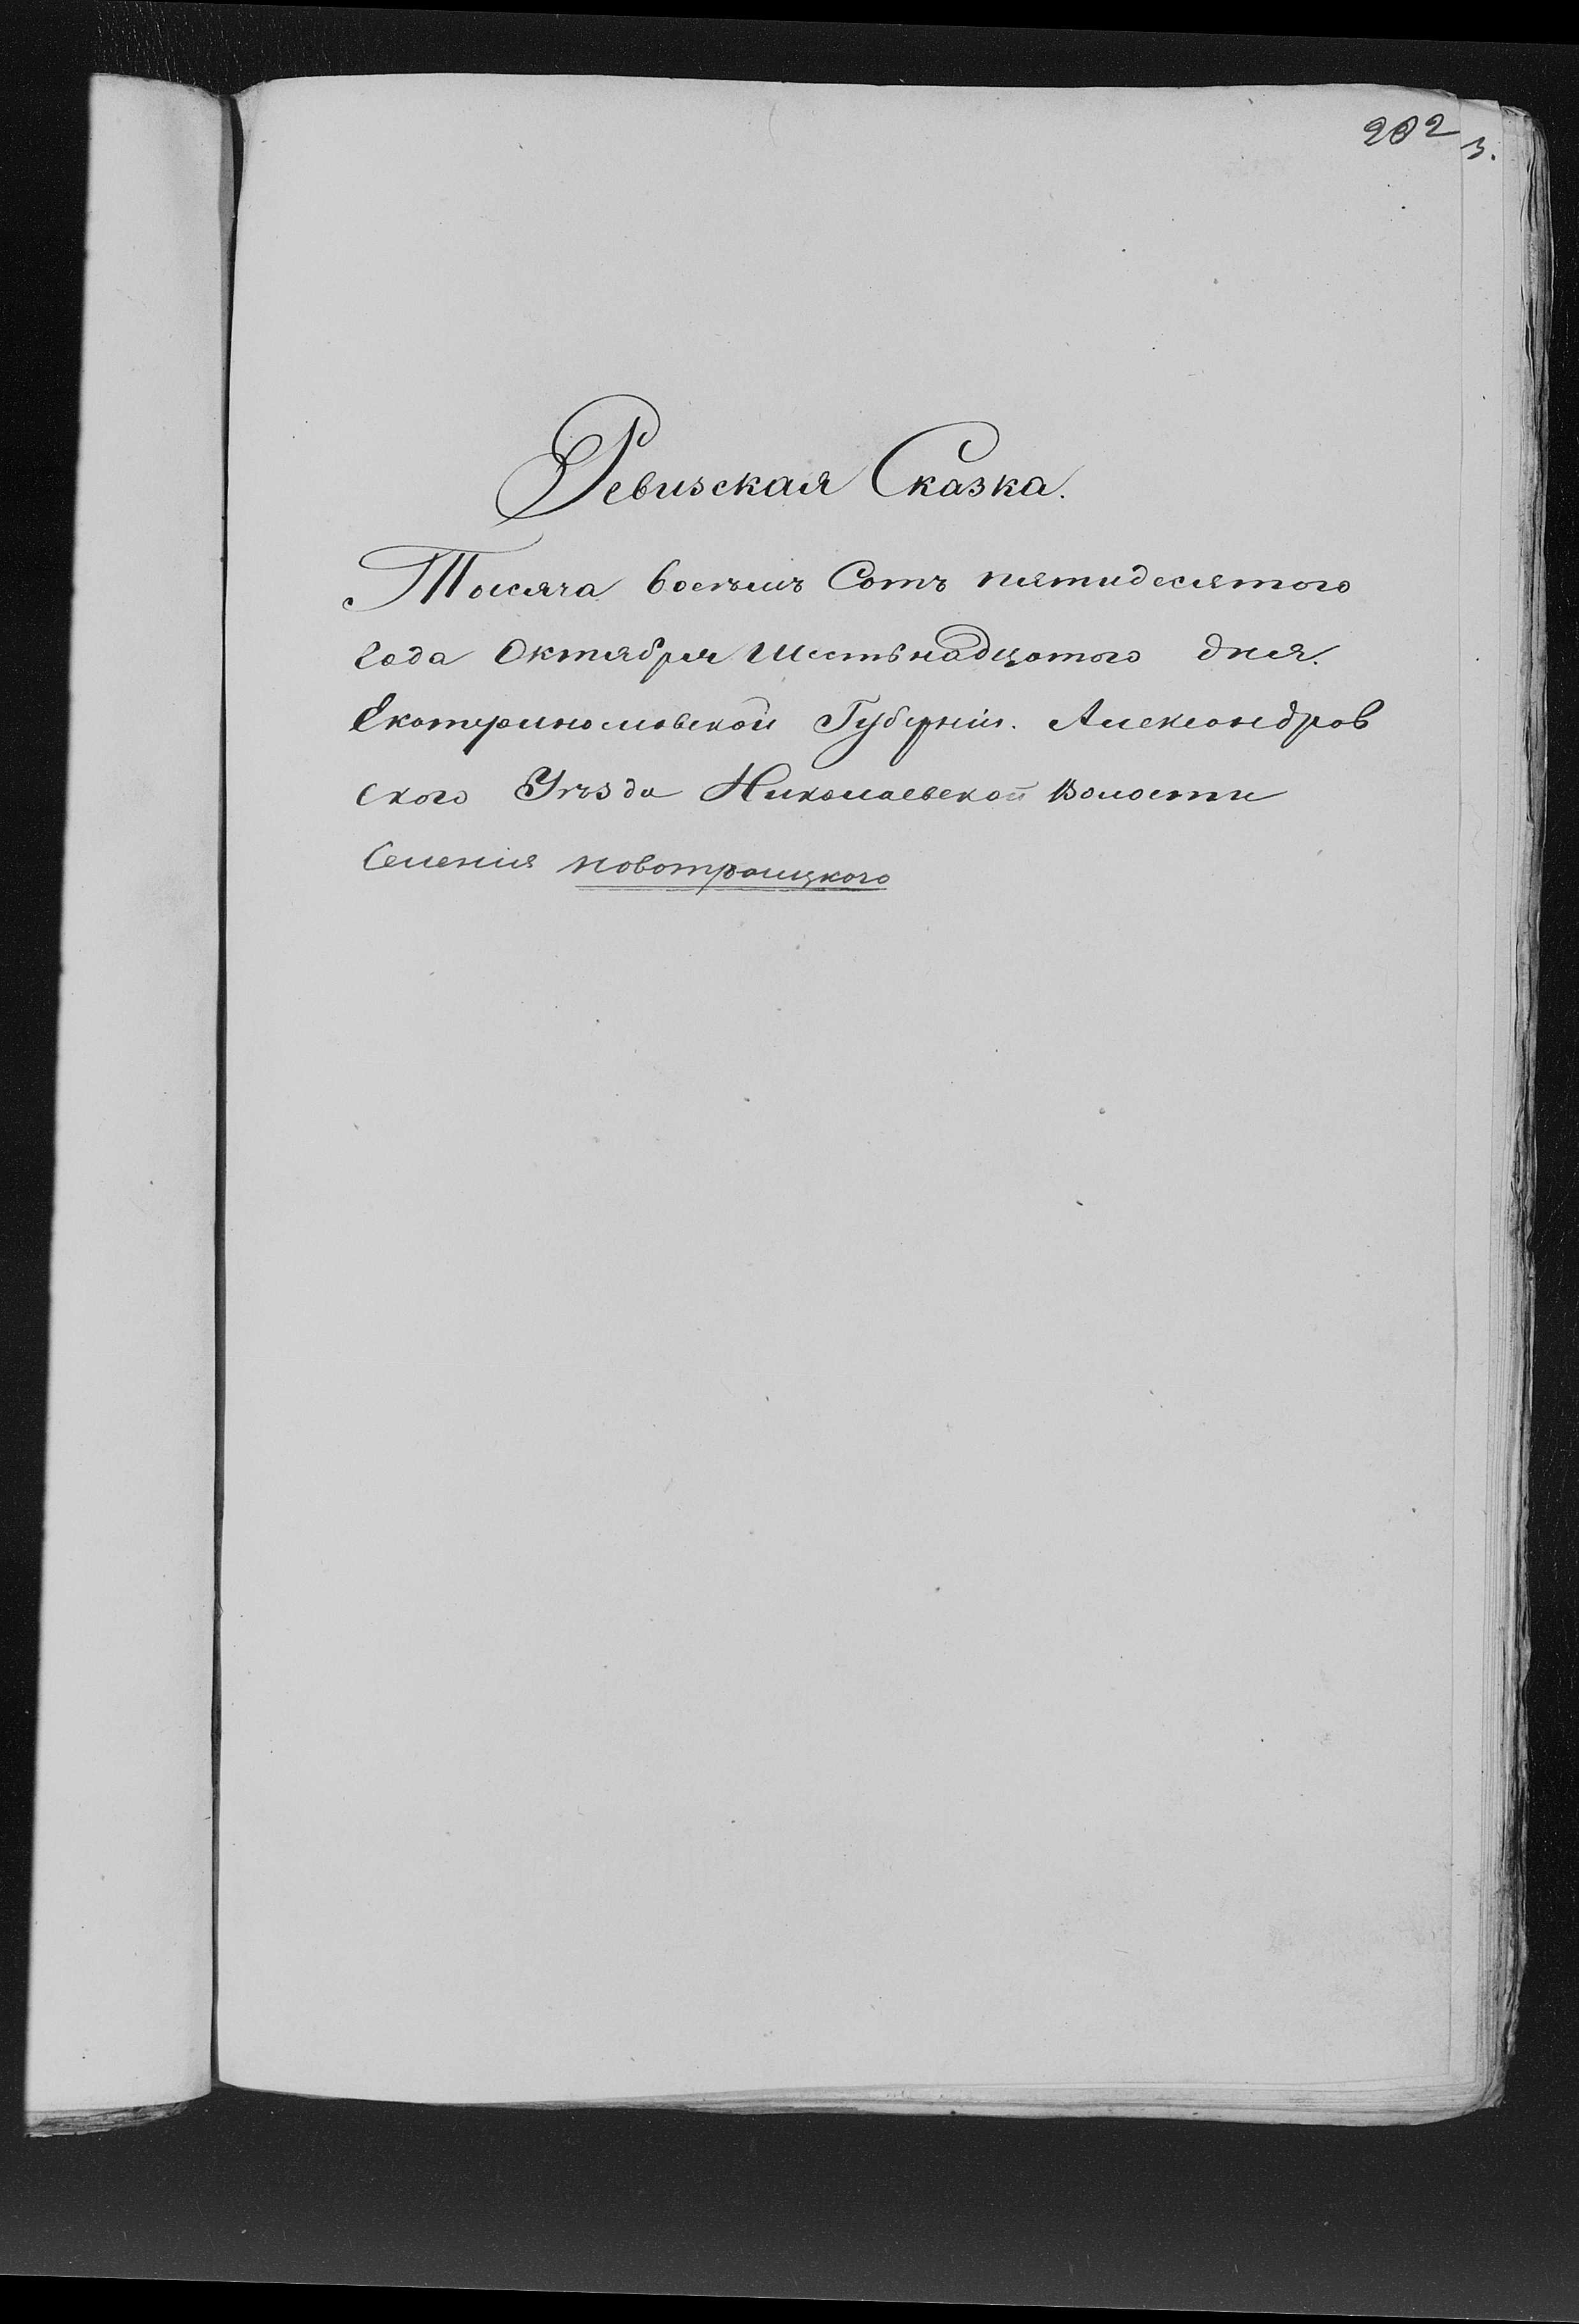 202
3.
Ревизская Сказка.
Тысяча восемь Сотъ пятидесятого
года Октября Шестьнадцатого дня.
Екатеринославской Губерніи. Александров
ского Уѣзда Николаевской Волости
Селенія новотроицкого